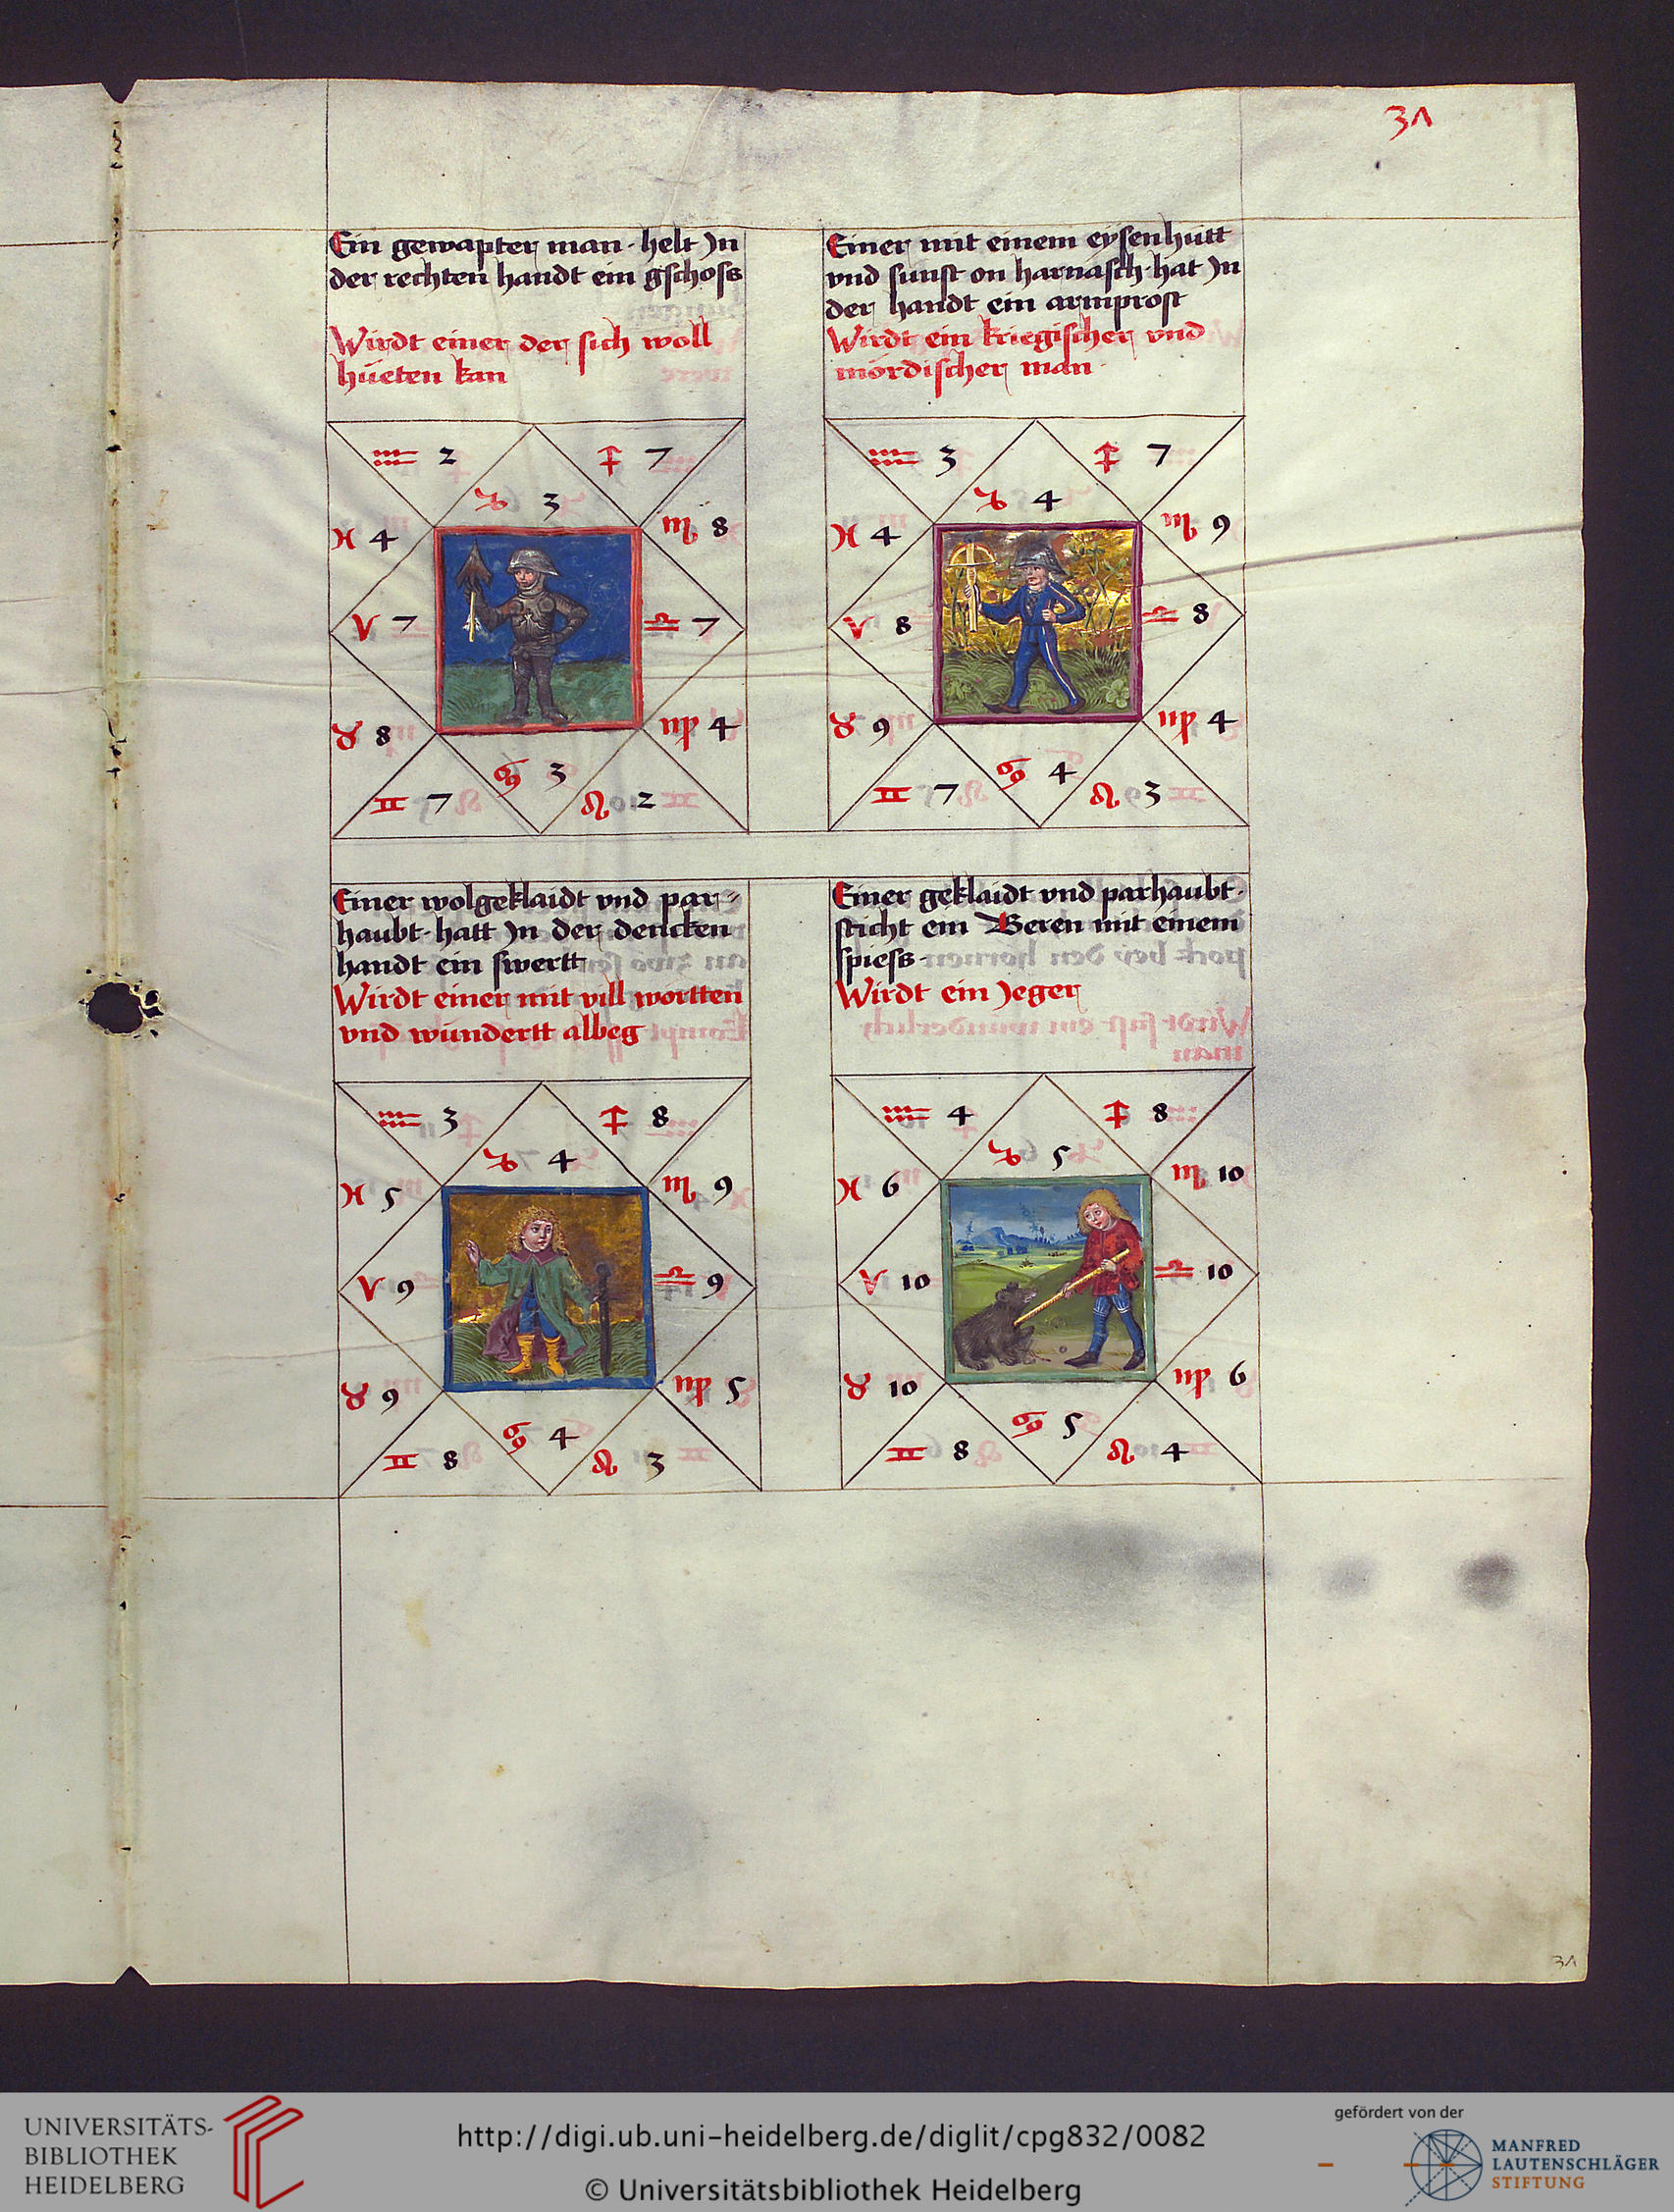 31
Ein gewapter man · helt Jn
der rechten handt ein gschoss
Wirdt einer der sich woll
hüeten kan
♒ 2
♐ 7
♑ 3
♓ 4
♏ 8
♈ 7
♎ 7
♉ 8
♍ 4
♋ 3
♊ 7
♌ 2
Einer mit einem eysenhutt
vnd sunst on harnasch · hat Jn
der handt ein armprost
Wirdt ein kriegischer vnd
mördischer man ·
♒ 3
♐ 7
♑ 4
♓ 4
♏ 9
♈ 8
♎ 8
♉ 9
♍ 4
♋ 4
♊ 7
♌ 3
Einer wolgeklaidt vnd par=
haubt · hatt Jn der dencken
handt ein swertt
Wirdt einer mit vill wortten
vnd wundertt albeg
♒ 3
♐ 8
♑ 4
♓ 5
♏ 9
♈ 9
♎ 9
♉ 9
♍ 5
♋ 4
♊ 8
♌ 3
Einer geklaidt vnd parhaubt ·
sticht ein Beren mit einem
spiess ·
Wirdt ein Jeger
♒ 4
♐ 8
♑ 5
♓ 6
♏ 10
♈ 10
♎ 10
♉ 10
♍ 6
♋ 5
♊ 8
♌ 4
31
UNIVERSITÄTS-
BIBLIOTHEK
HEIDELBERG
http://digi.ub.uni-heidelberg.de/diglit/cpg832/0082
© Universitätsbibliothek Heidelberg
gefördert von der
MANFRED
LAUTENSCHLÄGER
STIFTUNG